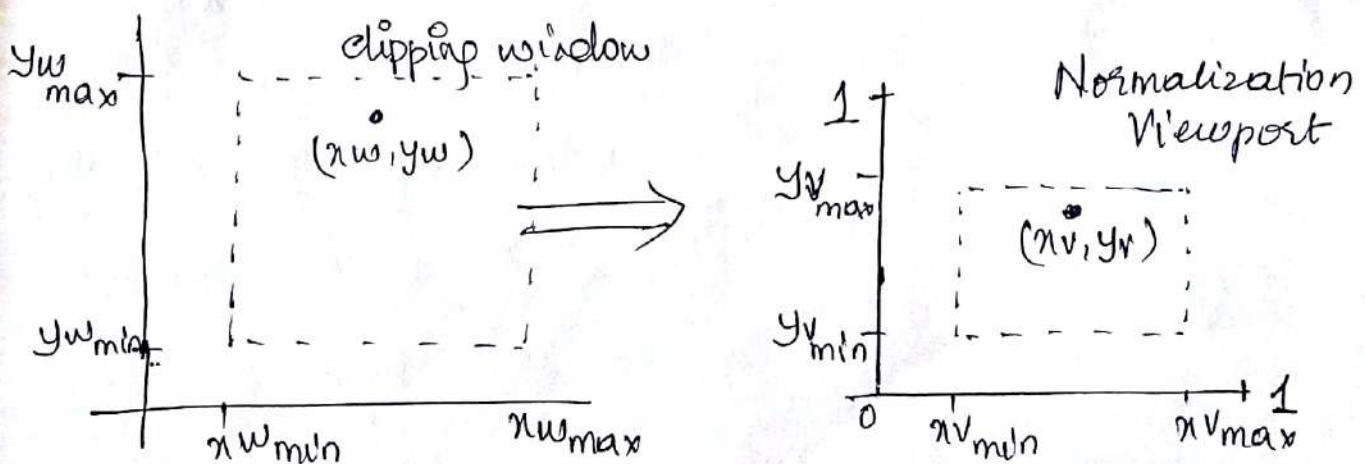 clipping window
yw max
(xw, yw)
yw min
xw min
xw max
Normalization
Viewport
1
yv max
(xv, yv)
yv min
0
xv min
xv max
1